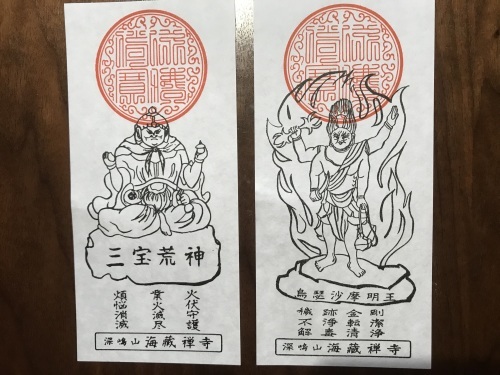 三宝荒神
火伏守護
業火滅尽
煩悩消滅
深鳴山 海蔵禅寺
烏瑟沙摩明王
穢跡金剛
不浄転潔
解毒清浄
深鳴山 海蔵禅寺